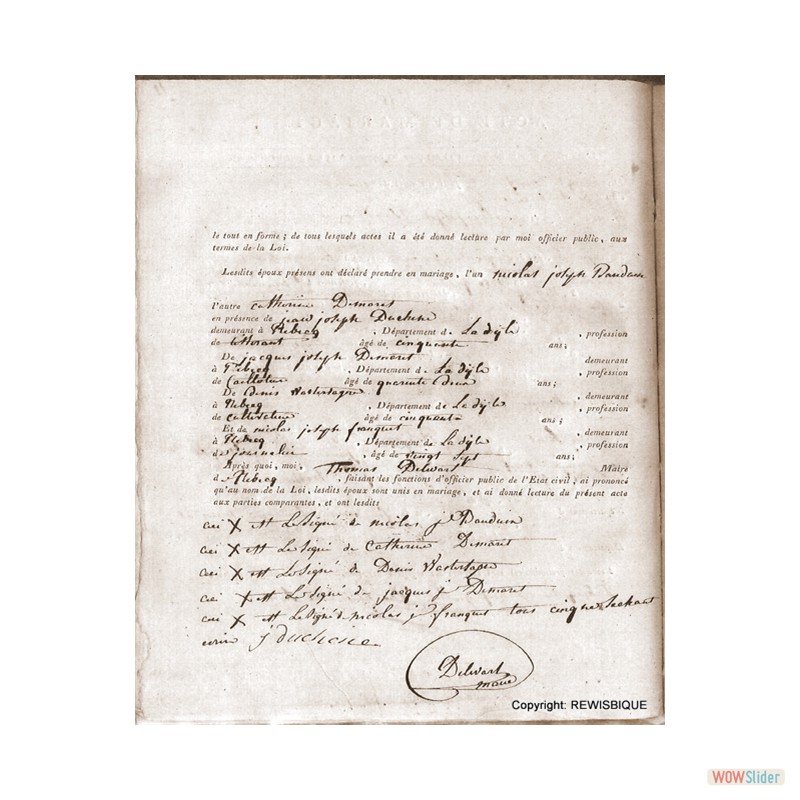 le tout en forme ; de tous lesquels actes il a été donné lecture par moi officier public, aux
termes de la Loi.
Lesdits époux présens ont déclaré prendre en mariage, l'un nicolas joseph Daudum
l'autre catherine Demaret
en présence de jean joseph Duchene
demeurant à Rebecq , Département de La dyle , profession
de âgé de cinquante ans ;
De jacques joseph Demaret demeurant
à Rebecq , Département de La dyle , profession
de âgé de quarente deux ans ;
De Denis Wasterlagne , demeurant
à Rebecq , Département de La dyle , profession
de cultivateur âgé de cinquante ans ;
Et de nicolas joseph franquet , demeurant
à Rebecq , Département de La dyle , profession
de journalier âgé de vingt sept ans ;
Après quoi, moi, Thomas Delwart Maire
de Rebecq , faisant les fonctions d'officier public de l'Etat civil, ai prononcé
qu'au nom de la Loi, lesdits époux sont unis en mariage, et ai donné lecture du présent acte
aux parties comparantes, et ont lesdits
ceci X est Le Signé de nicolas j Daudum
ceci X est Le Signé de Catherine Demaret
ceci X est Le Signé de Denis
ceci X est Le Signé de jacques j Demaret
ceci X est Le Signé de nicolas j franquet tous cinq ne Sachant
ecrire j duchesne
Delwart
maire
Copyright: REWISBIQUE
WOWSlider